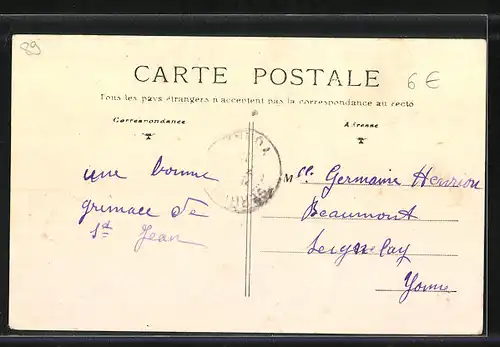 89
CARTE POSTALE
6 €
Tous les pays étrangers n'acceptent pas la correspondance au recto
Correspondance
Adresse
une bonne
grimace de
St Jean
Mlle Germaine Henrion
Beaumont
Seignelay
Yonne